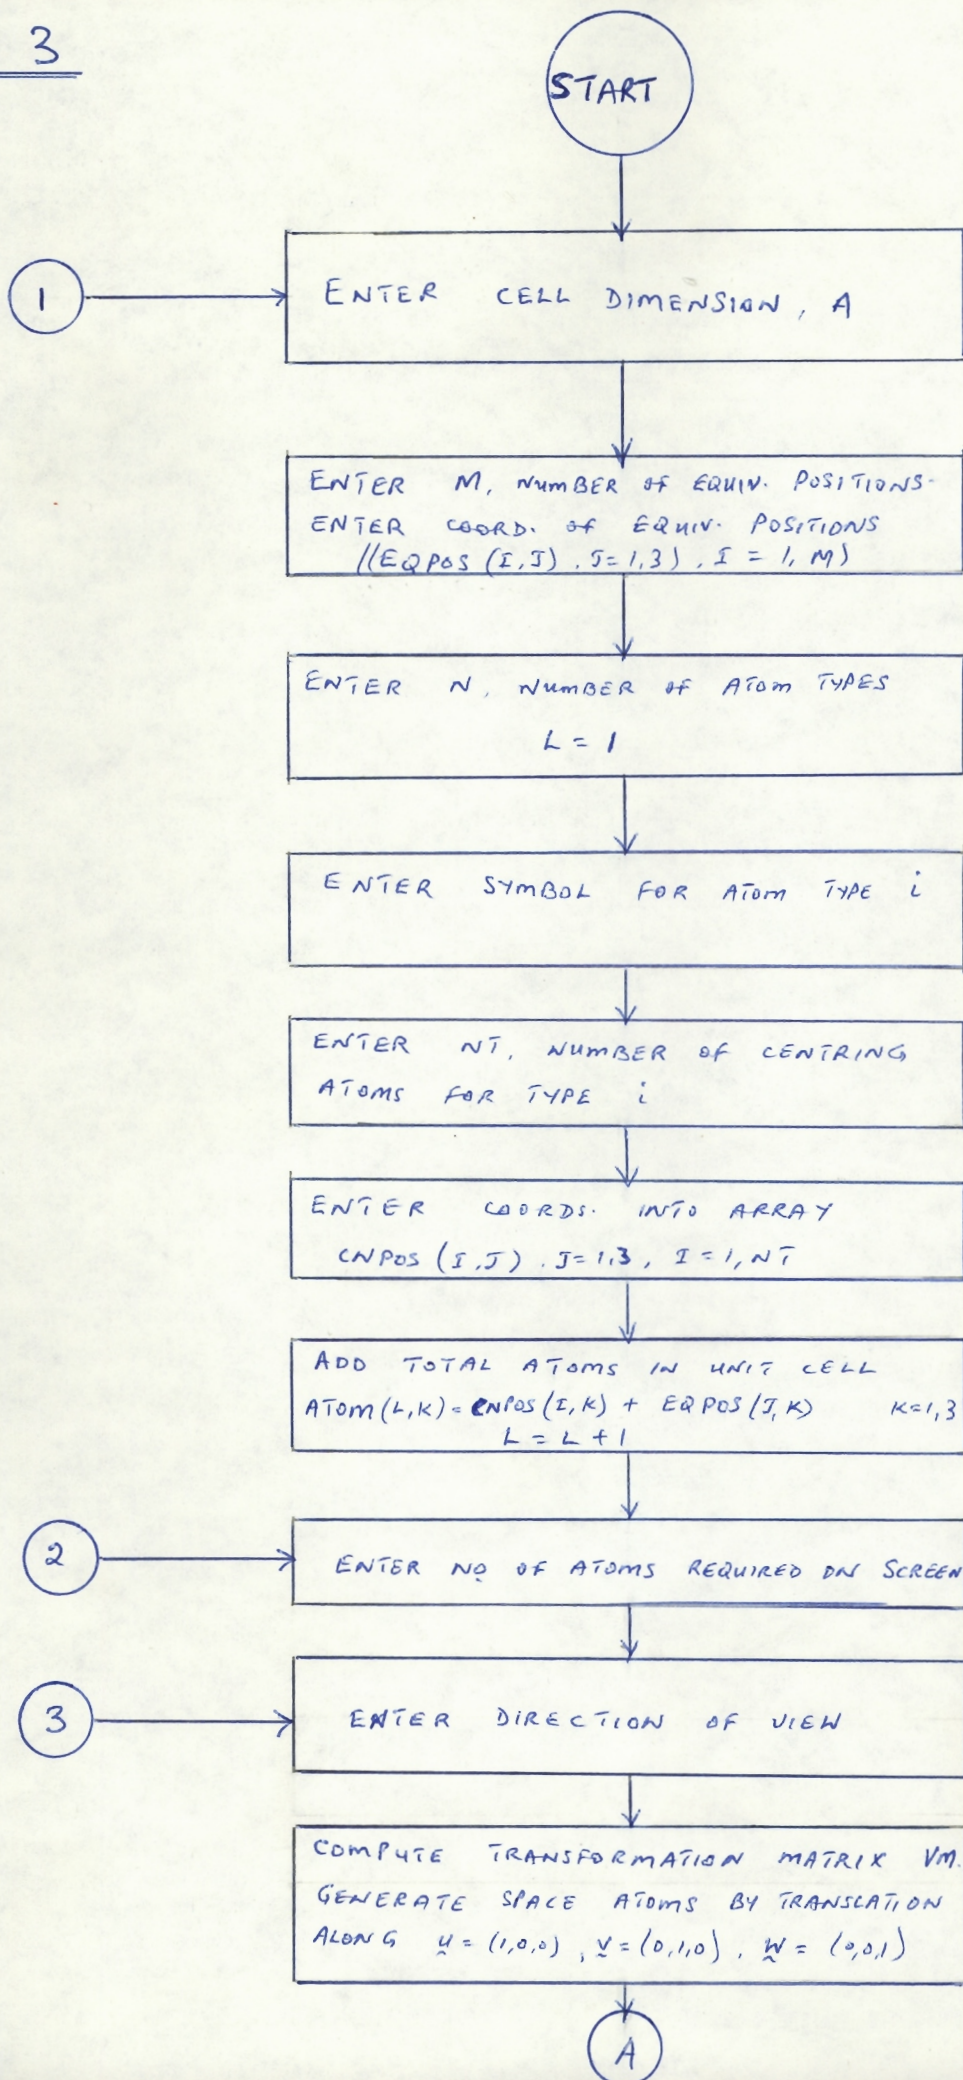 3
START
1
ENTER CELL DIMENSION, A
ENTER M, NUMBER OF EQUIV. POSITIONS.
ENTER COORD. OF EQUIV. POSITIONS
((EQPOS (I,J), J=1,3), I = 1, M)
ENTER N, NUMBER OF ATOM TYPES
L = 1
ENTER SYMBOL FOR ATOM TYPE i
ENTER NT, NUMBER OF CENTRING
ATOMS FOR TYPE i
ENTER COORDS. INTO ARRAY
CNPOS (I,J), J=1,3, I = 1, NT
ADD TOTAL ATOMS IN UNIT CELL
ATOM(L,K) = CNPOS(I,K) + EQPOS(J,K) K=1,3
L = L + 1
2
ENTER NO OF ATOMS REQUIRED ON SCREEN
3
ENTER DIRECTION OF VIEW
COMPUTE TRANSFORMATION MATRIX VM.
GENERATE SPACE ATOMS BY TRANSLATION
ALONG u = (1,0,0), v = (0,1,0), w = (0,0,1)
A